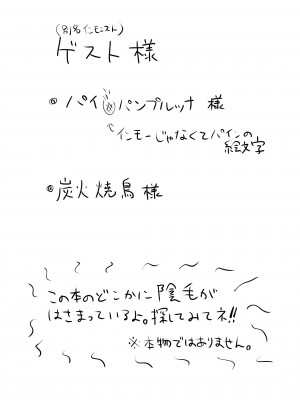 (別名インモニスト)
ゲスト様
◎パイパンプルッナ 様
インモーじゃなくてパインの
絵文字
◎炭火焼鳥様
この本のどこかに陰毛が
はさまっているよ。探してみてネ!!
※本物ではありません。